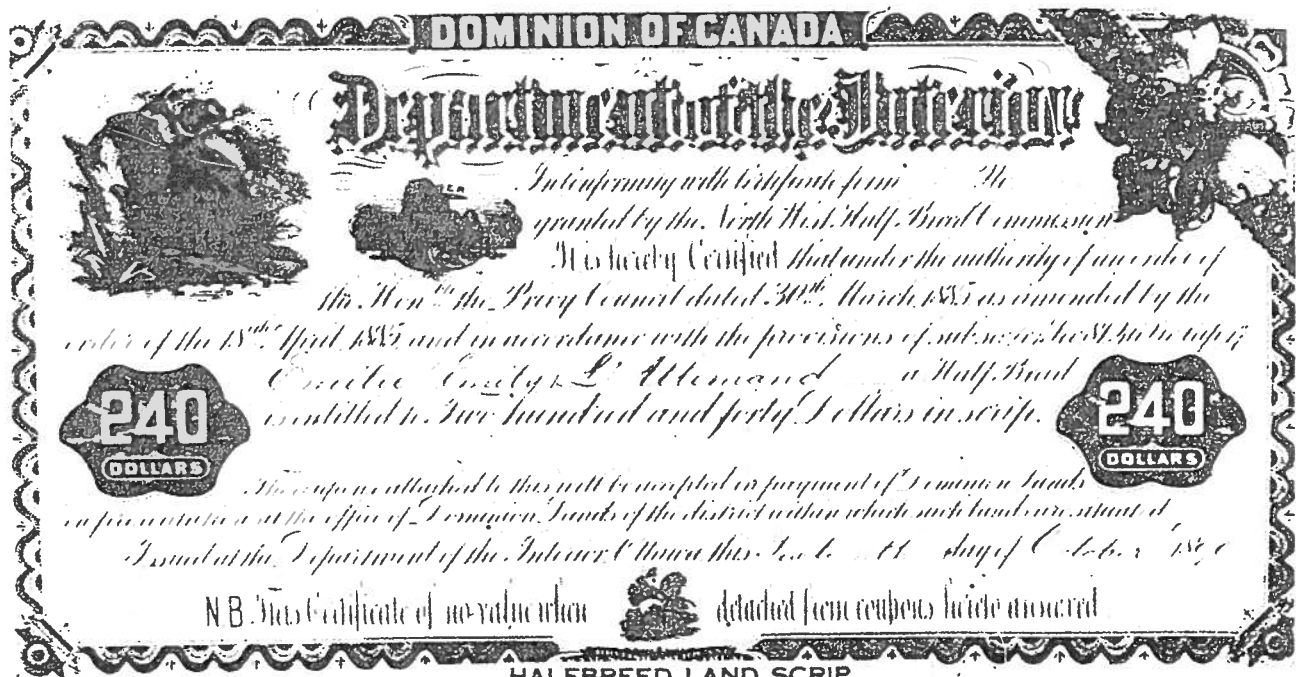 DOMINION OF CANADA
Department of the Interior
In conformity with Certificate form
granted by the North West Half Breed Commission
It is hereby Certified that under the authority of an order of
the Honble the Privy Council dated 30th March 1885 as amended by the
order of the 18th April 1885 and in accordance with the provisions of
Emily L'Allemand a Half Breed
is entitled to Two hundred and forty Dollars in scrip.
240
DOLLARS
240
DOLLARS
The coupons attached to this will be accepted in payment of Dominion Lands
on presentation at the office of Dominion Lands of the district within which such lands are situated
Issued at the Department of the Interior Ottawa this day of October
N.B. This Certificate of no value when detached from coupons hereto annexed
HALFBREED LAND SCRIP